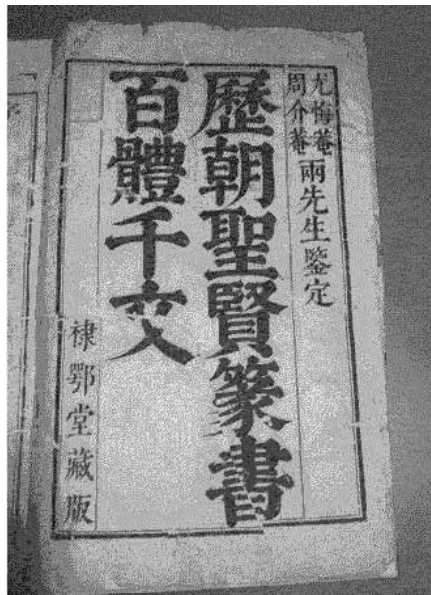 尤悔菴
周介菴
兩先生鑒定
歷朝聖賢篆書
百體千文
棣鄂堂藏版